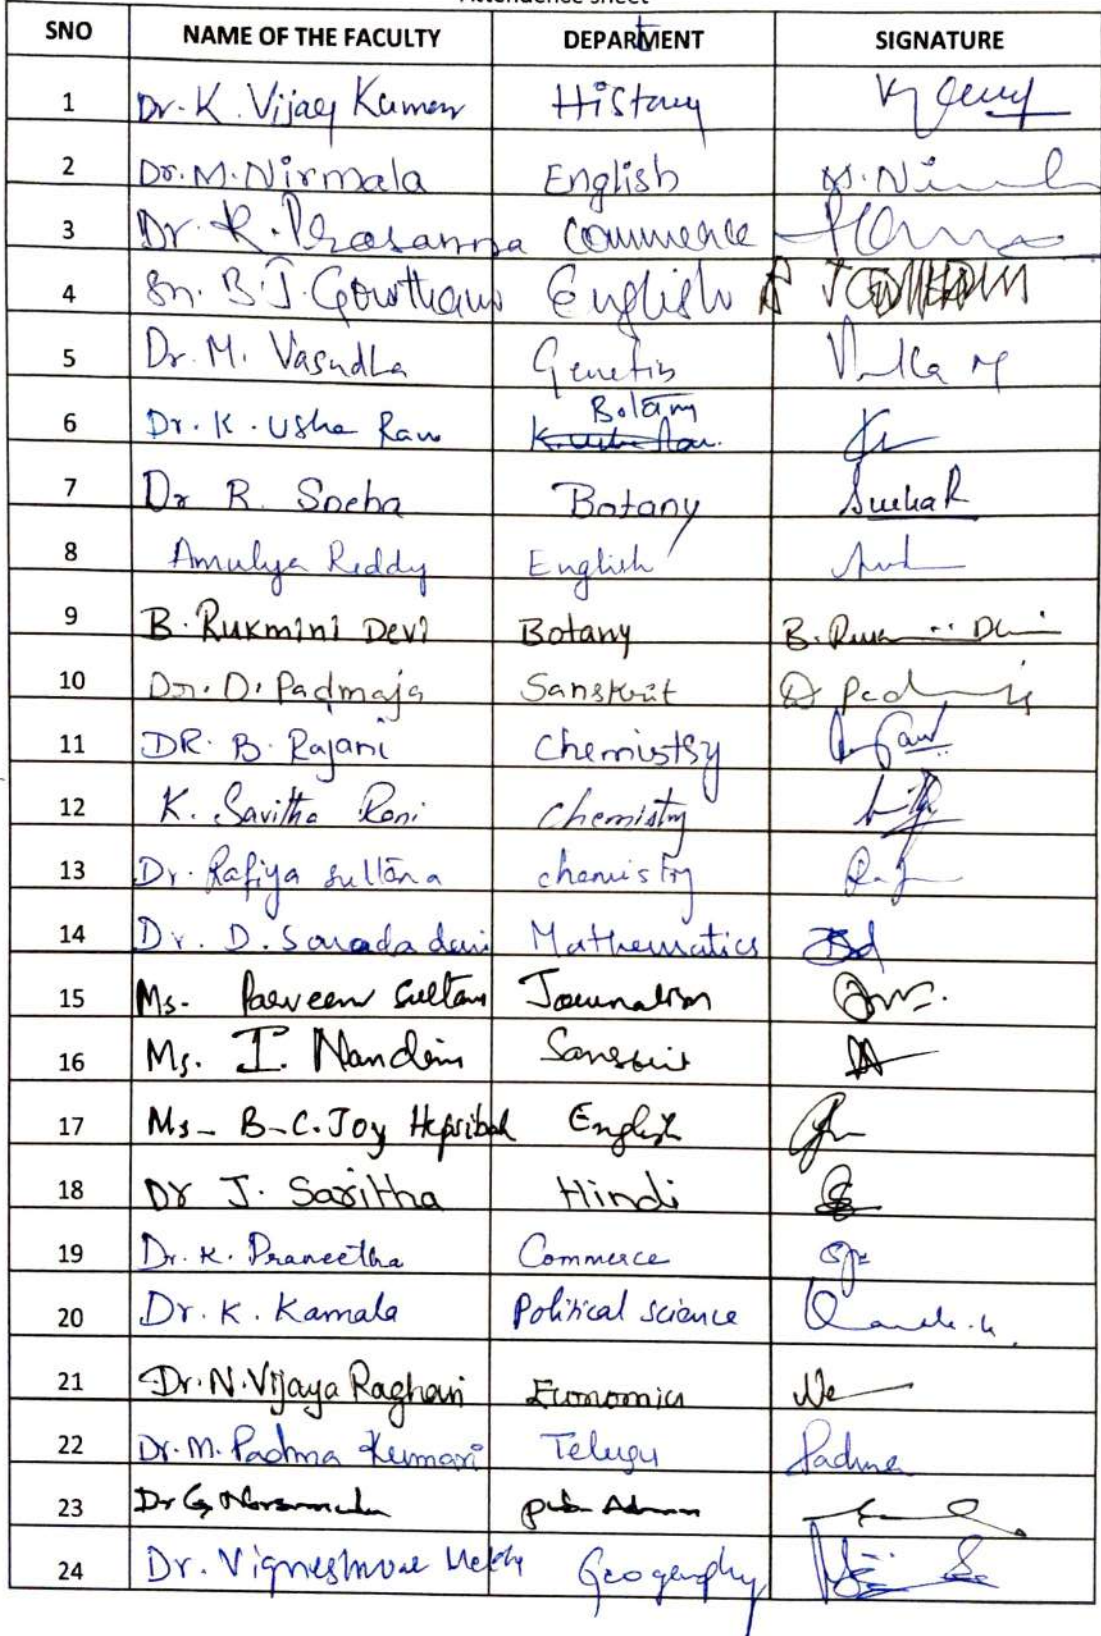 Attendence sheet
SNO NAME OF THE FACULTY DEPARTMENT SIGNATURE
1 Dr. K. Vijay Kumar History
2 Dr. M. Nirmala English M. Nirmala
3 Dr. R. Prasanna Commerce
4 Sri. B.J. Gowtham English B J GOWTHAM
5 Dr. M. Vasudha Genetics
6 Dr. K. Usha Rani Botany
7 Dr R. Sneha Botany Sneha R
8 Amulya Reddy English
9 B. Rukmini Devi Botany
10 Dr. D. Padmaja Sanskrit
11 DR. B. Rajani Chemistry
12 K. Savitha Rani Chemistry
13 Dr. Rafiya Sultana chemistry
14 Dr. D. Sarada devi Mathematics
15 Ms. Parveen Sultana Journalism
16 Ms. I. Nandini Sanskrit
17 Ms. B.C. Joy Hepsibah English
18 Dr J. Saritha Hindi
19 Dr. K. Praneetha Commerce
20 Dr. K. Kamala Political science
21 Dr. N. Vijaya Raghavi Economics
22 Dr. M. Padma Kumari Telugu Padma
23 Dr G. pub Admn
24 Dr. Vigneshwar Reddy Geography